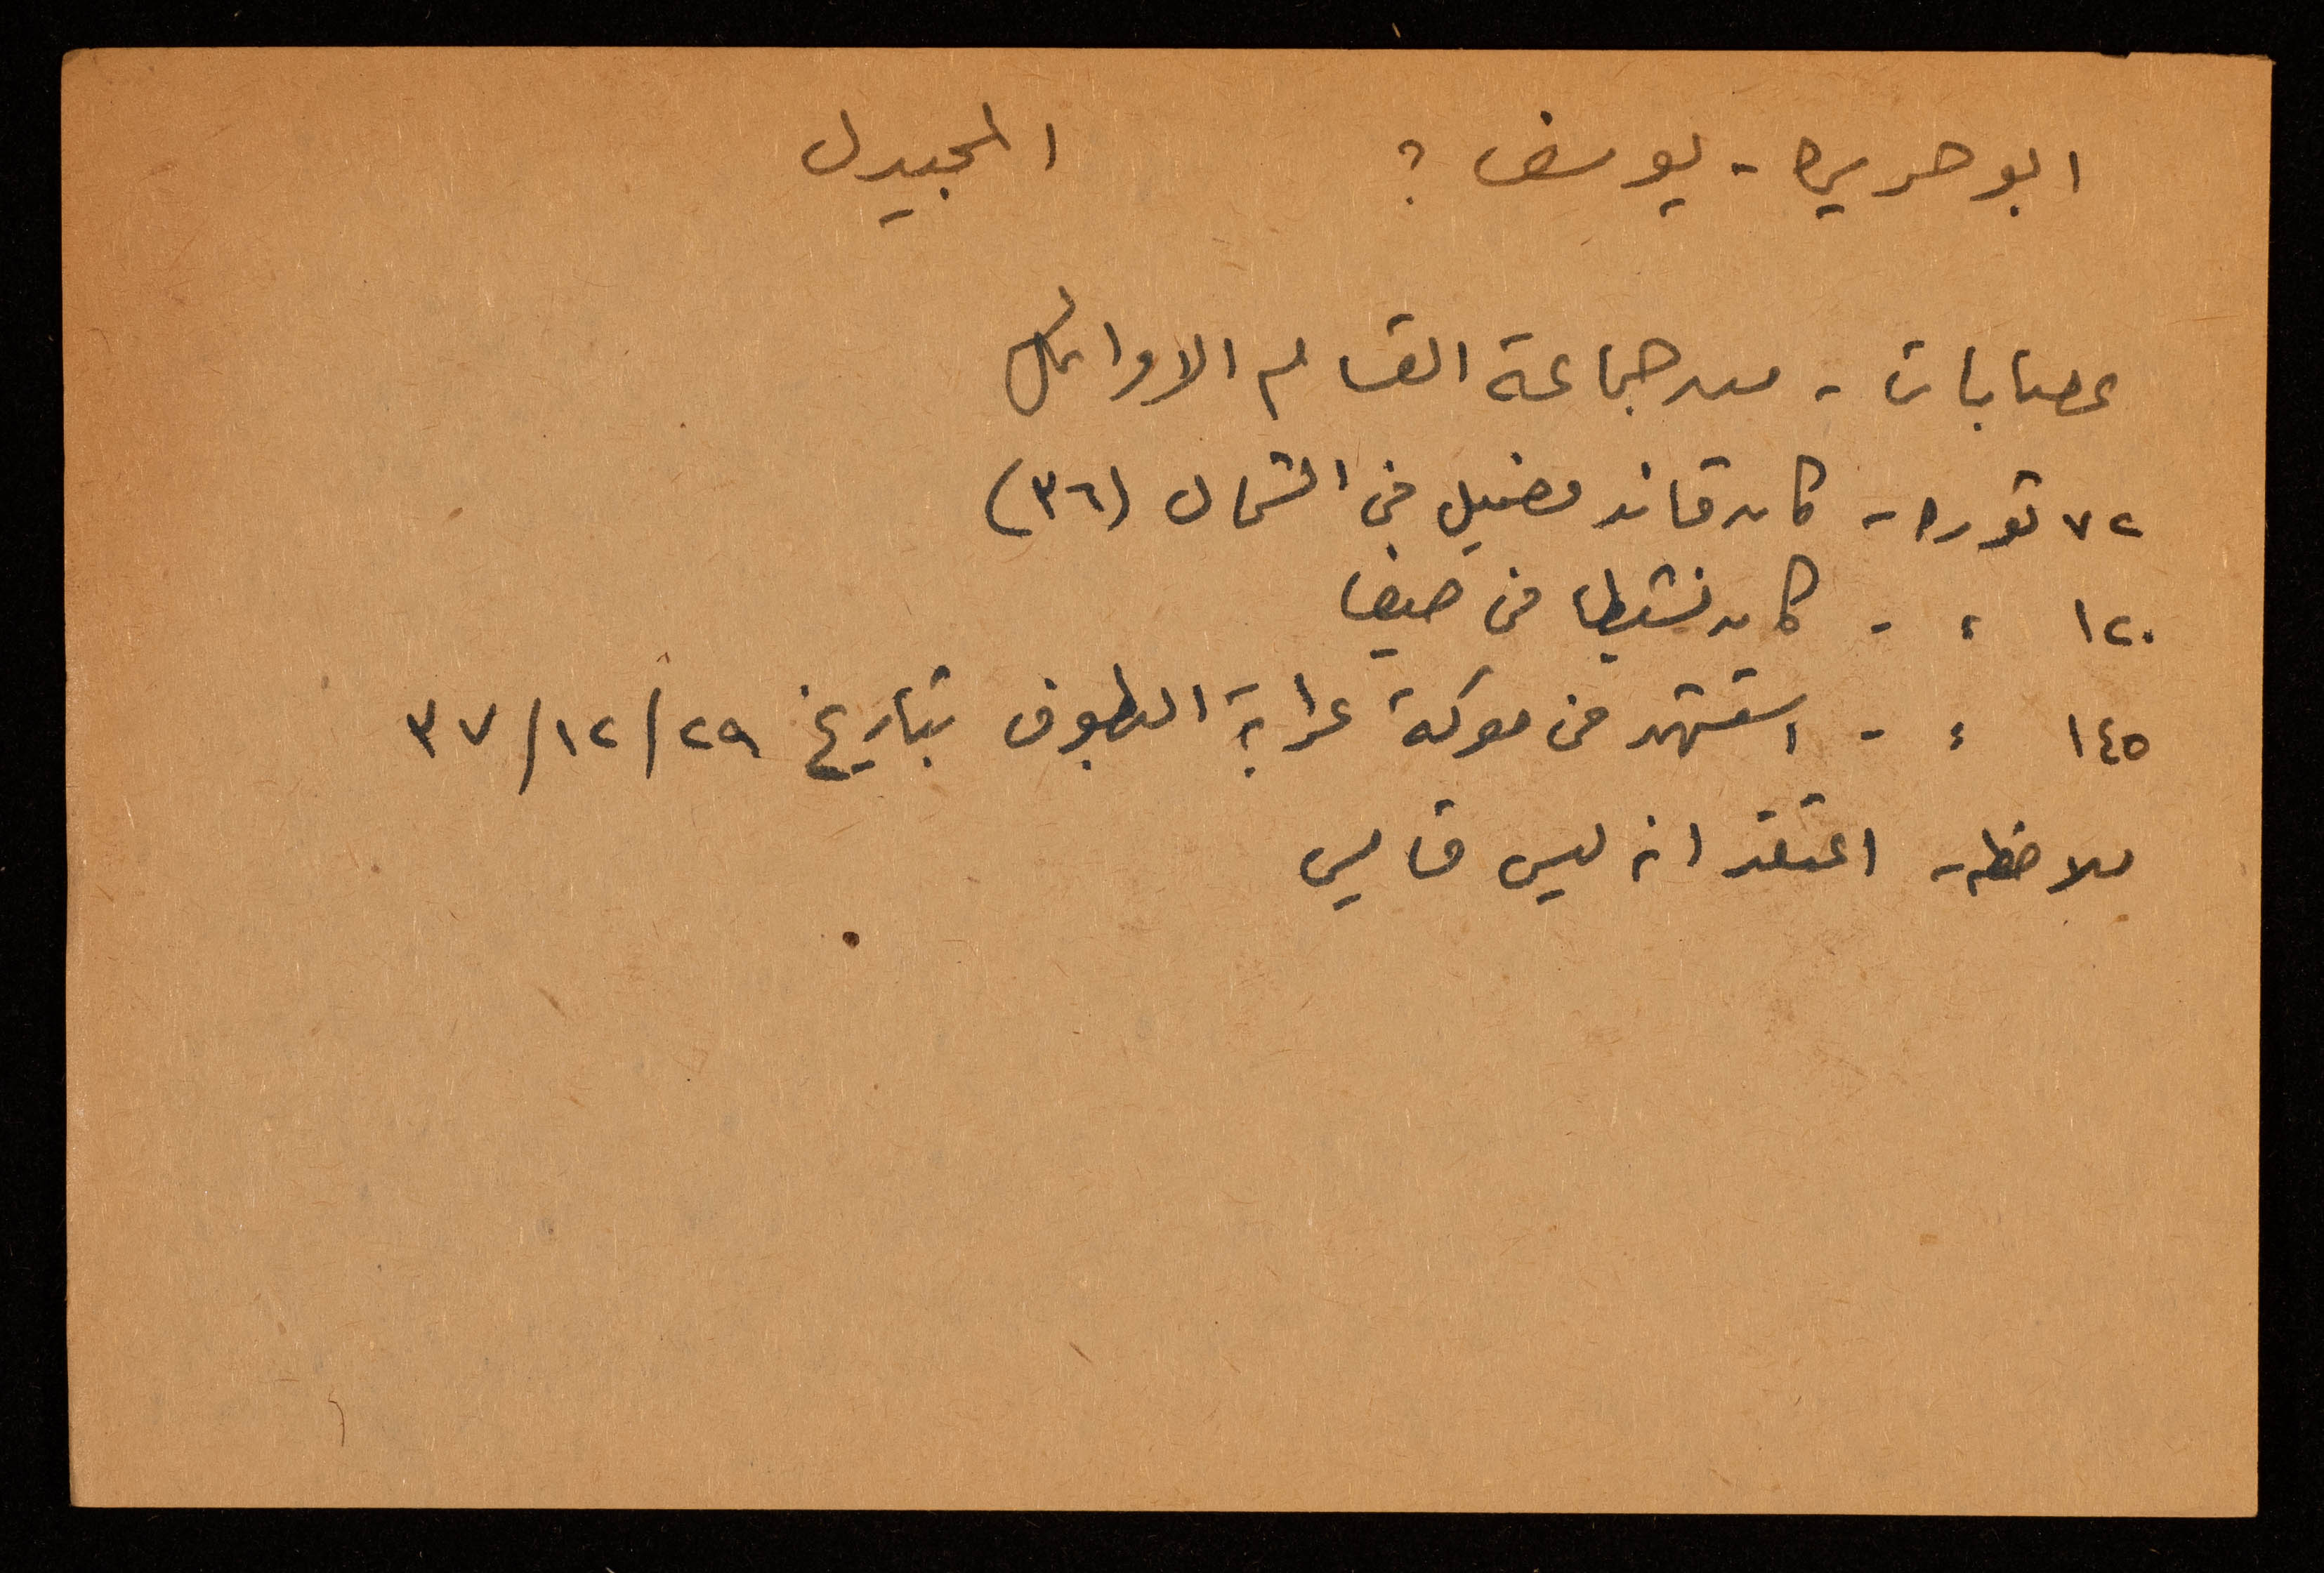 ابو حريره - يوسف ؟ المجيدل
عصابات - من جماعة القسام الاوائل
٧٢ ثوره - كان قائد فصيل في الشمال (٣٦)
١٢٠ ، - كان نشيطا في حيفا
١٤٥ ، - استشهد في معركة عرابة البطوف بتاريخ ٢٩/١٢/٣٧
ملاحظه - اعتقد انه ليس قا